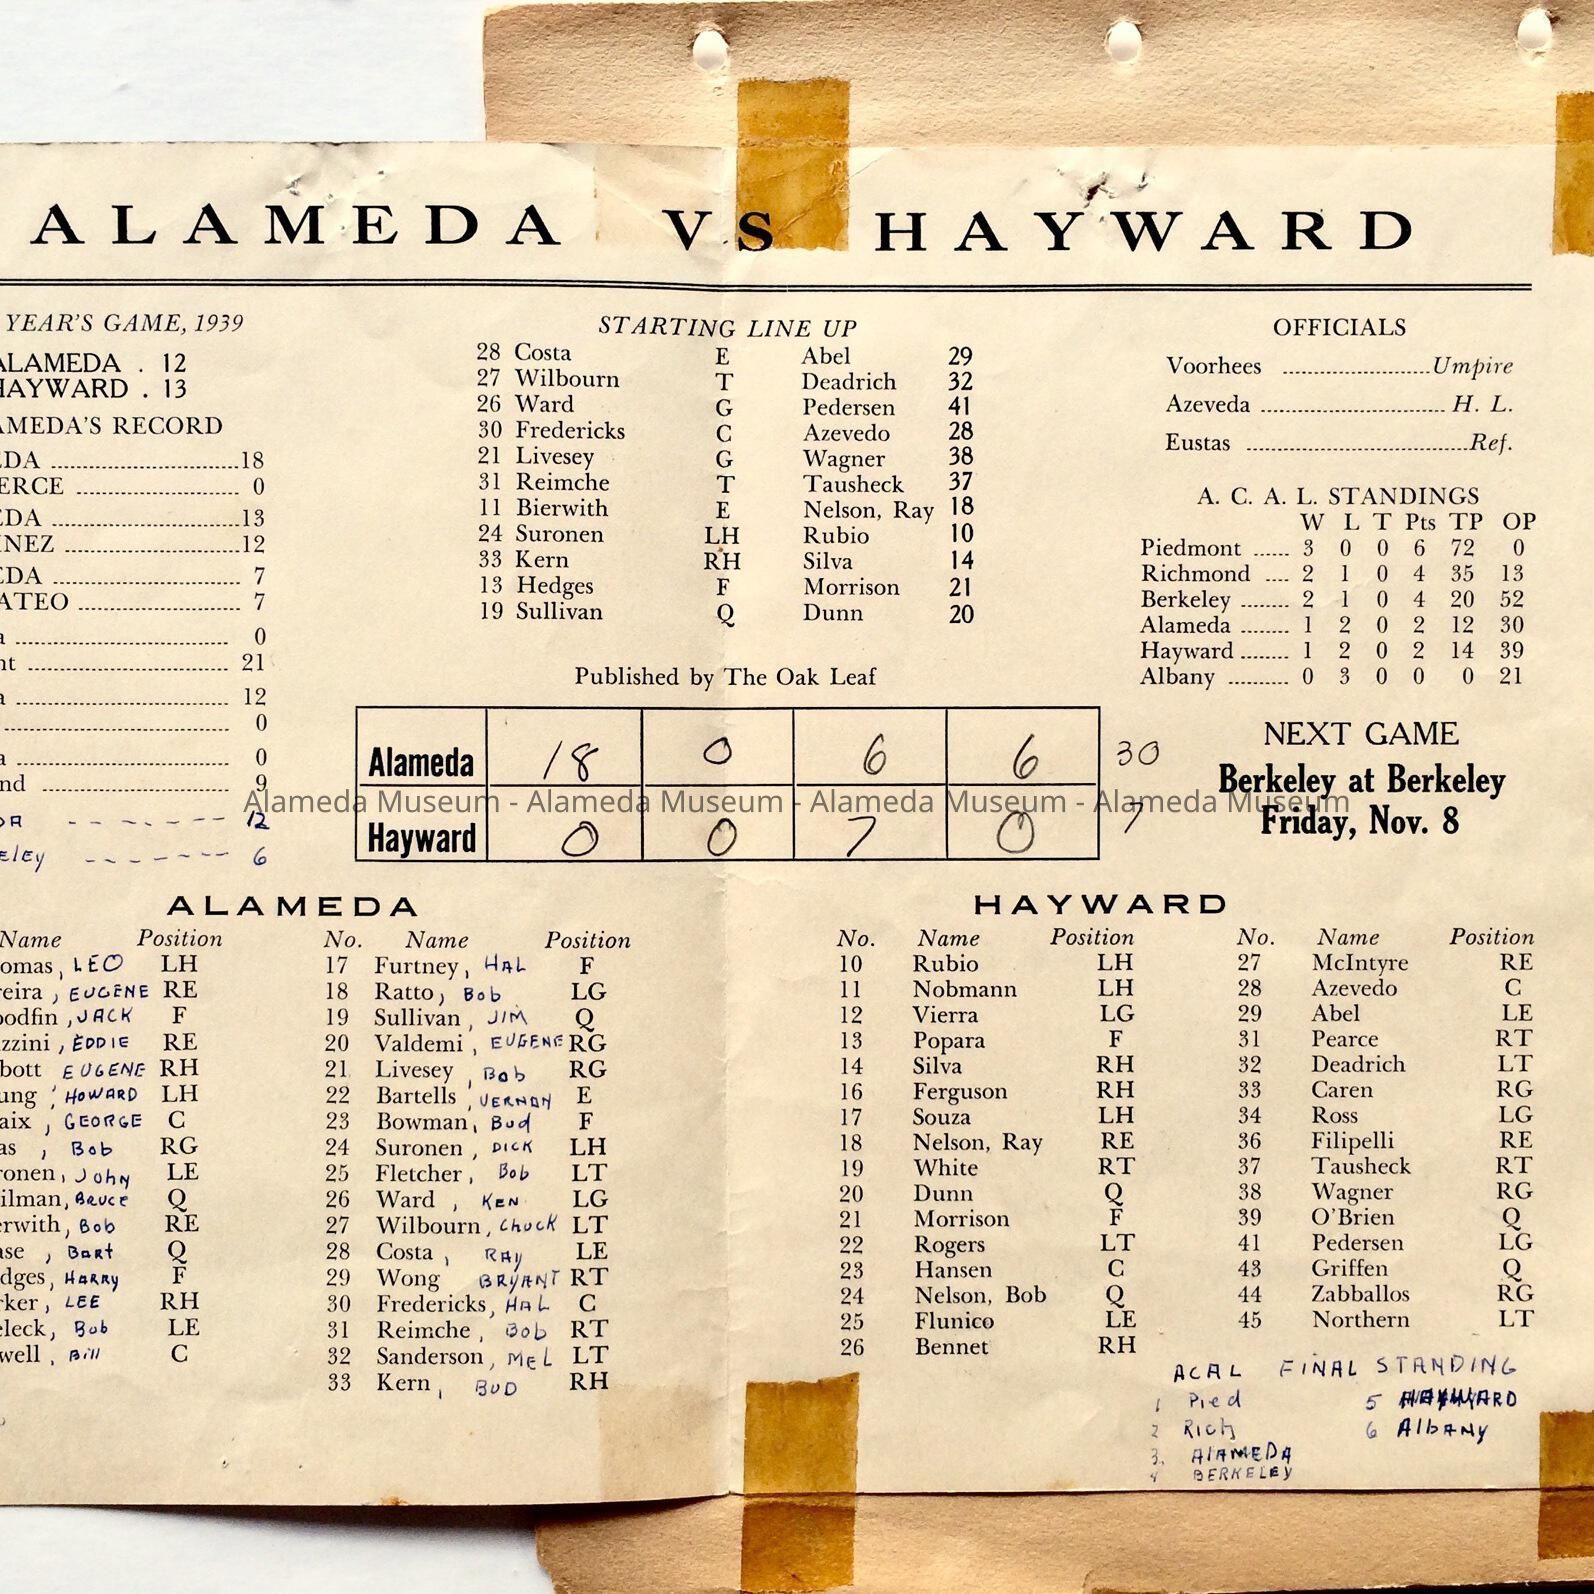 ALAMEDA VS HAYWARD
YEAR'S GAME, 1939
ALAMEDA . 12
HAYWARD . 13
AMEDA'S RECORD
EDA ..........18
ERCE .......... 0
EDA ..........13
INEZ ..........12
EDA .......... 7
ATEO .......... 7
a .......... 0
nt .......... 21
a .......... 12
.......... 0
a .......... 0
nd .......... 9
DA - - - - - - - 12
eley - - - - - - - 6
STARTING LINE UP
28 Costa E Abel 29
27 Wilbourn T Deadrich 32
26 Ward G Pedersen 41
30 Fredericks C Azevedo 28
21 Livesey G Wagner 38
31 Reimche T Tausheck 37
11 Bierwith E Nelson, Ray 18
24 Suronen LH Rubio 10
33 Kern RH Silva 14
13 Hedges F Morrison 21
19 Sullivan Q Dunn 20
Published by The Oak Leaf
OFFICIALS
Voorhees ..........Umpire
Azeveda .......... H. L.
Eustas ..........Ref.
A. C. A. L. STANDINGS
W L T Pts TP OP
Piedmont ...... 3 0 0 6 72 0
Richmond .... 2 1 0 4 35 13
Berkeley ........ 2 1 0 4 20 52
Alameda ........ 1 2 0 2 12 30
Hayward ........ 1 2 0 2 14 39
Albany .......... 0 3 0 0 0 21
Alameda 18 0 6 6 30
Hayward 0 0 7 0 7
NEXT GAME
Berkeley at Berkeley
Friday, Nov. 8
Alameda Museum - Alameda Museum - Alameda Museum - Alameda Museum
ALAMEDA
Name Position
omas, LEO LH
reira, EUGENE RE
oodfin, JACK F
zzini, EDDIE RE
bott EUGENE RH
ung, HOWARD LH
aix, GEORGE C
as, Bob RG
ronen, John LE
ilman, Bruce Q
erwith, Bob RE
ase, Bart Q
dges, HARRY F
rker, LEE RH
eleck, Bob LE
well, Bill C
No. Name Position
17 Furtney, HAL F
18 Ratto, Bob LG
19 Sullivan, JIM Q
20 Valdemi, EUGENE RG
21 Livesey, Bob RG
22 Bartells, VERNON E
23 Bowman, Bud F
24 Suronen, DICK LH
25 Fletcher, Bob LT
26 Ward, KEN LG
27 Wilbourn, Chuck LT
28 Costa, RAY LE
29 Wong BRYANT RT
30 Fredericks, HAL C
31 Reimche, Bob RT
32 Sanderson, MEL LT
33 Kern, BUD RH
HAYWARD
No. Name Position
10 Rubio LH
11 Nobmann LH
12 Vierra LG
13 Popara F
14 Silva RH
16 Ferguson RH
17 Souza LH
18 Nelson, Ray RE
19 White RT
20 Dunn Q
21 Morrison F
22 Rogers LT
23 Hansen C
24 Nelson, Bob Q
25 Flunico LE
26 Bennet RH
No. Name Position
27 McIntyre RE
28 Azevedo C
29 Abel LE
31 Pearce RT
32 Deadrich LT
33 Caren RG
34 Ross LG
36 Filipelli RE
37 Tausheck RT
38 Wagner RG
39 O'Brien Q
41 Pedersen LG
43 Griffen Q
44 Zabballos RG
45 Northern LT
ACAL FINAL STANDING
1 Pied
2 Rich
3. ALAMEDA
4 BERKELEY
5 HAYWARD
6 Albany